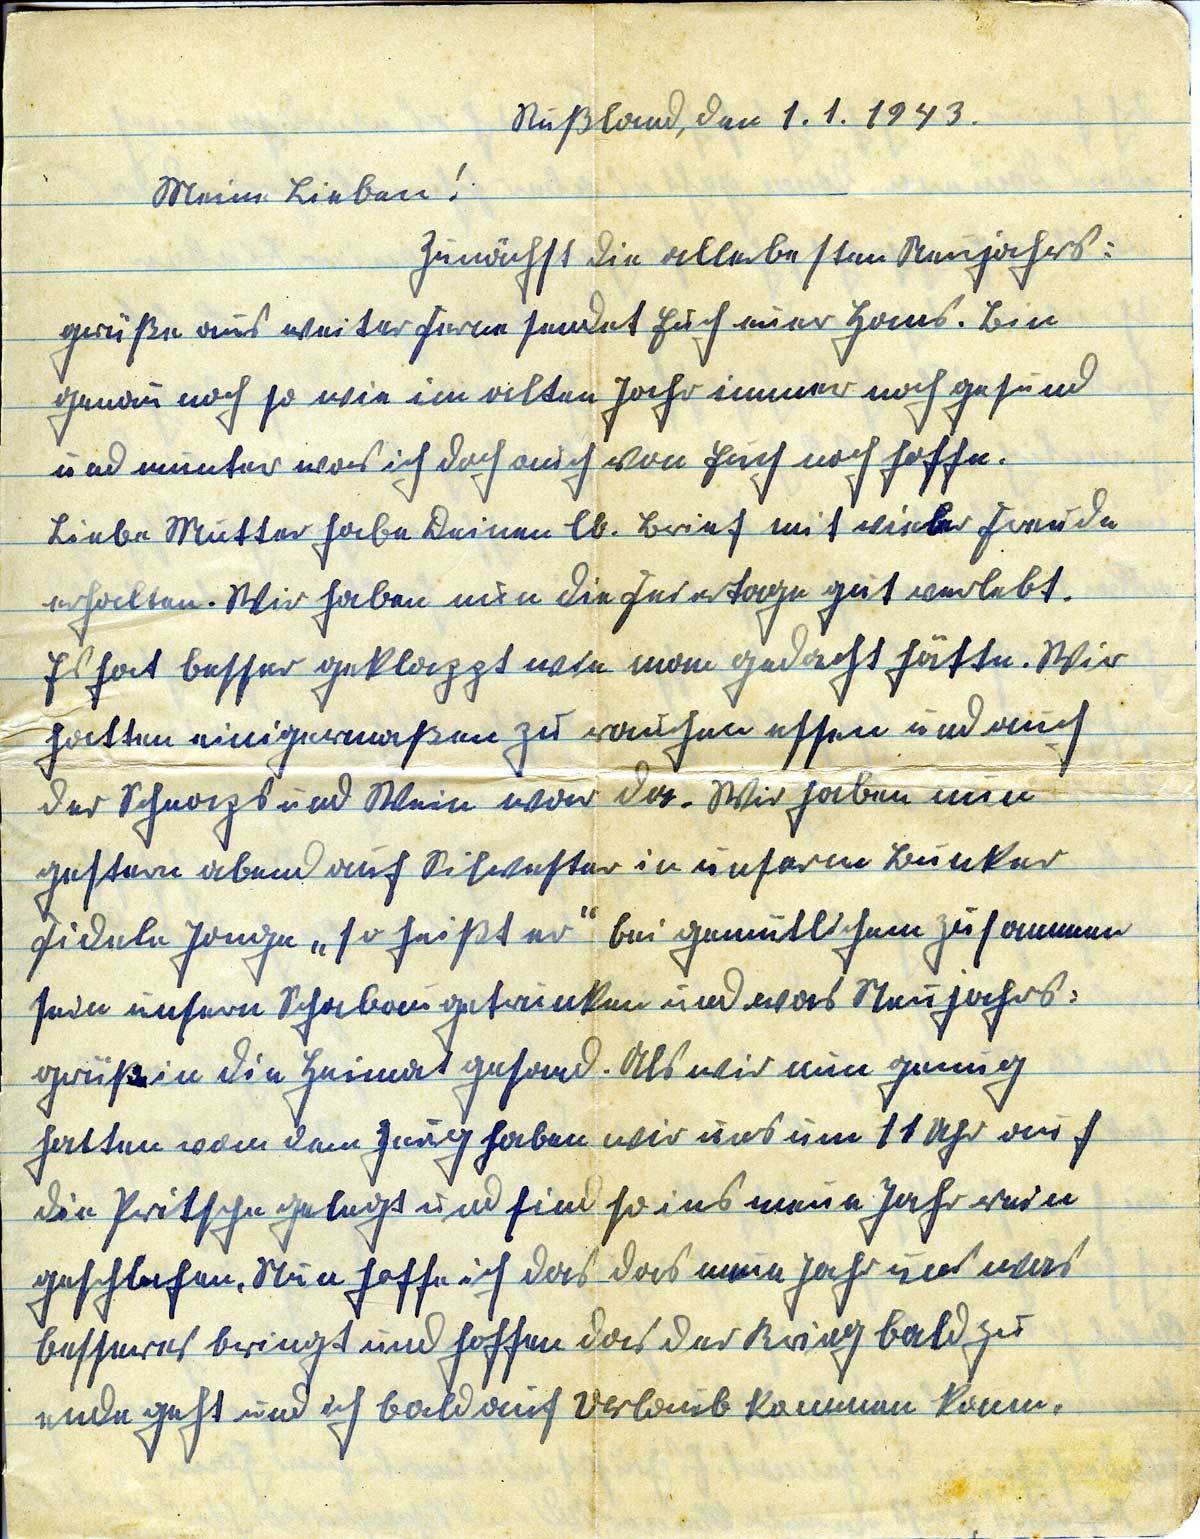 Rußland, den 1.1.1943.
Meine Lieben!
Zunächst die allerbesten Neujahrs=
grüße aus weiter Ferne sendet Euch euer Hans. Bin
genau noch so wie im alten Jahr immer noch gesund
und munter was ich doch auch von Euch noch hoffe.
Liebe Mutter habe Deinen lb. Brief mit vieler Freude
erhalten. Wir haben nun die Feiertage gut verlebt.
Es hat besser geklappt wie man gedacht hätte. Wir
hatten einigermaßen zu rauchen essen und auch
der Schnaps und Wein war da. Wir haben nun
gestern abend auf Silvester in unserm Bunker
Fidele Jonge „so heißt er“ bei gemütlichem zusammen
sein unsern Schabau getrunken und was Neujahrs=
grüße in die Heimat gesand. Als wir nun genug
hatten von dem Zeug haben wir uns um 11 Uhr auf
die Pritsche gelegt und sind so ins neue Jahr rein
geschlafen. Nun hoffe ich das das neue Jahr uns was
besseres bringt und hoffen das der Krieg bald zu
ende geht und ich bald auf Verlaub kommen kann.